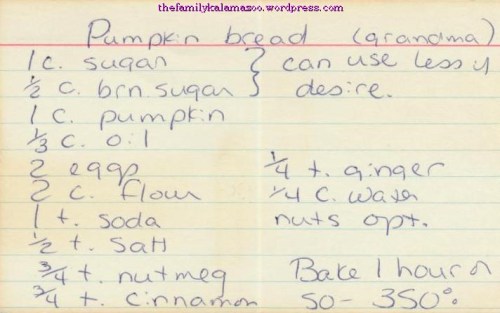 thefamilykalamazoo.wordpress.com
Pumpkin bread (grandma)
1 c. sugar } can use less if
1/2 c. brn. sugar } desire.
1 c. pumpkin
1/3 c. oil
2 eggs
2 c. flour
1 t. soda
1/2 t. salt
3/4 t. nutmeg
3/4 t. cinnamon
1/4 t. ginger
1/4 c. water
nuts opt.
Bake 1 hour or
so - 350°